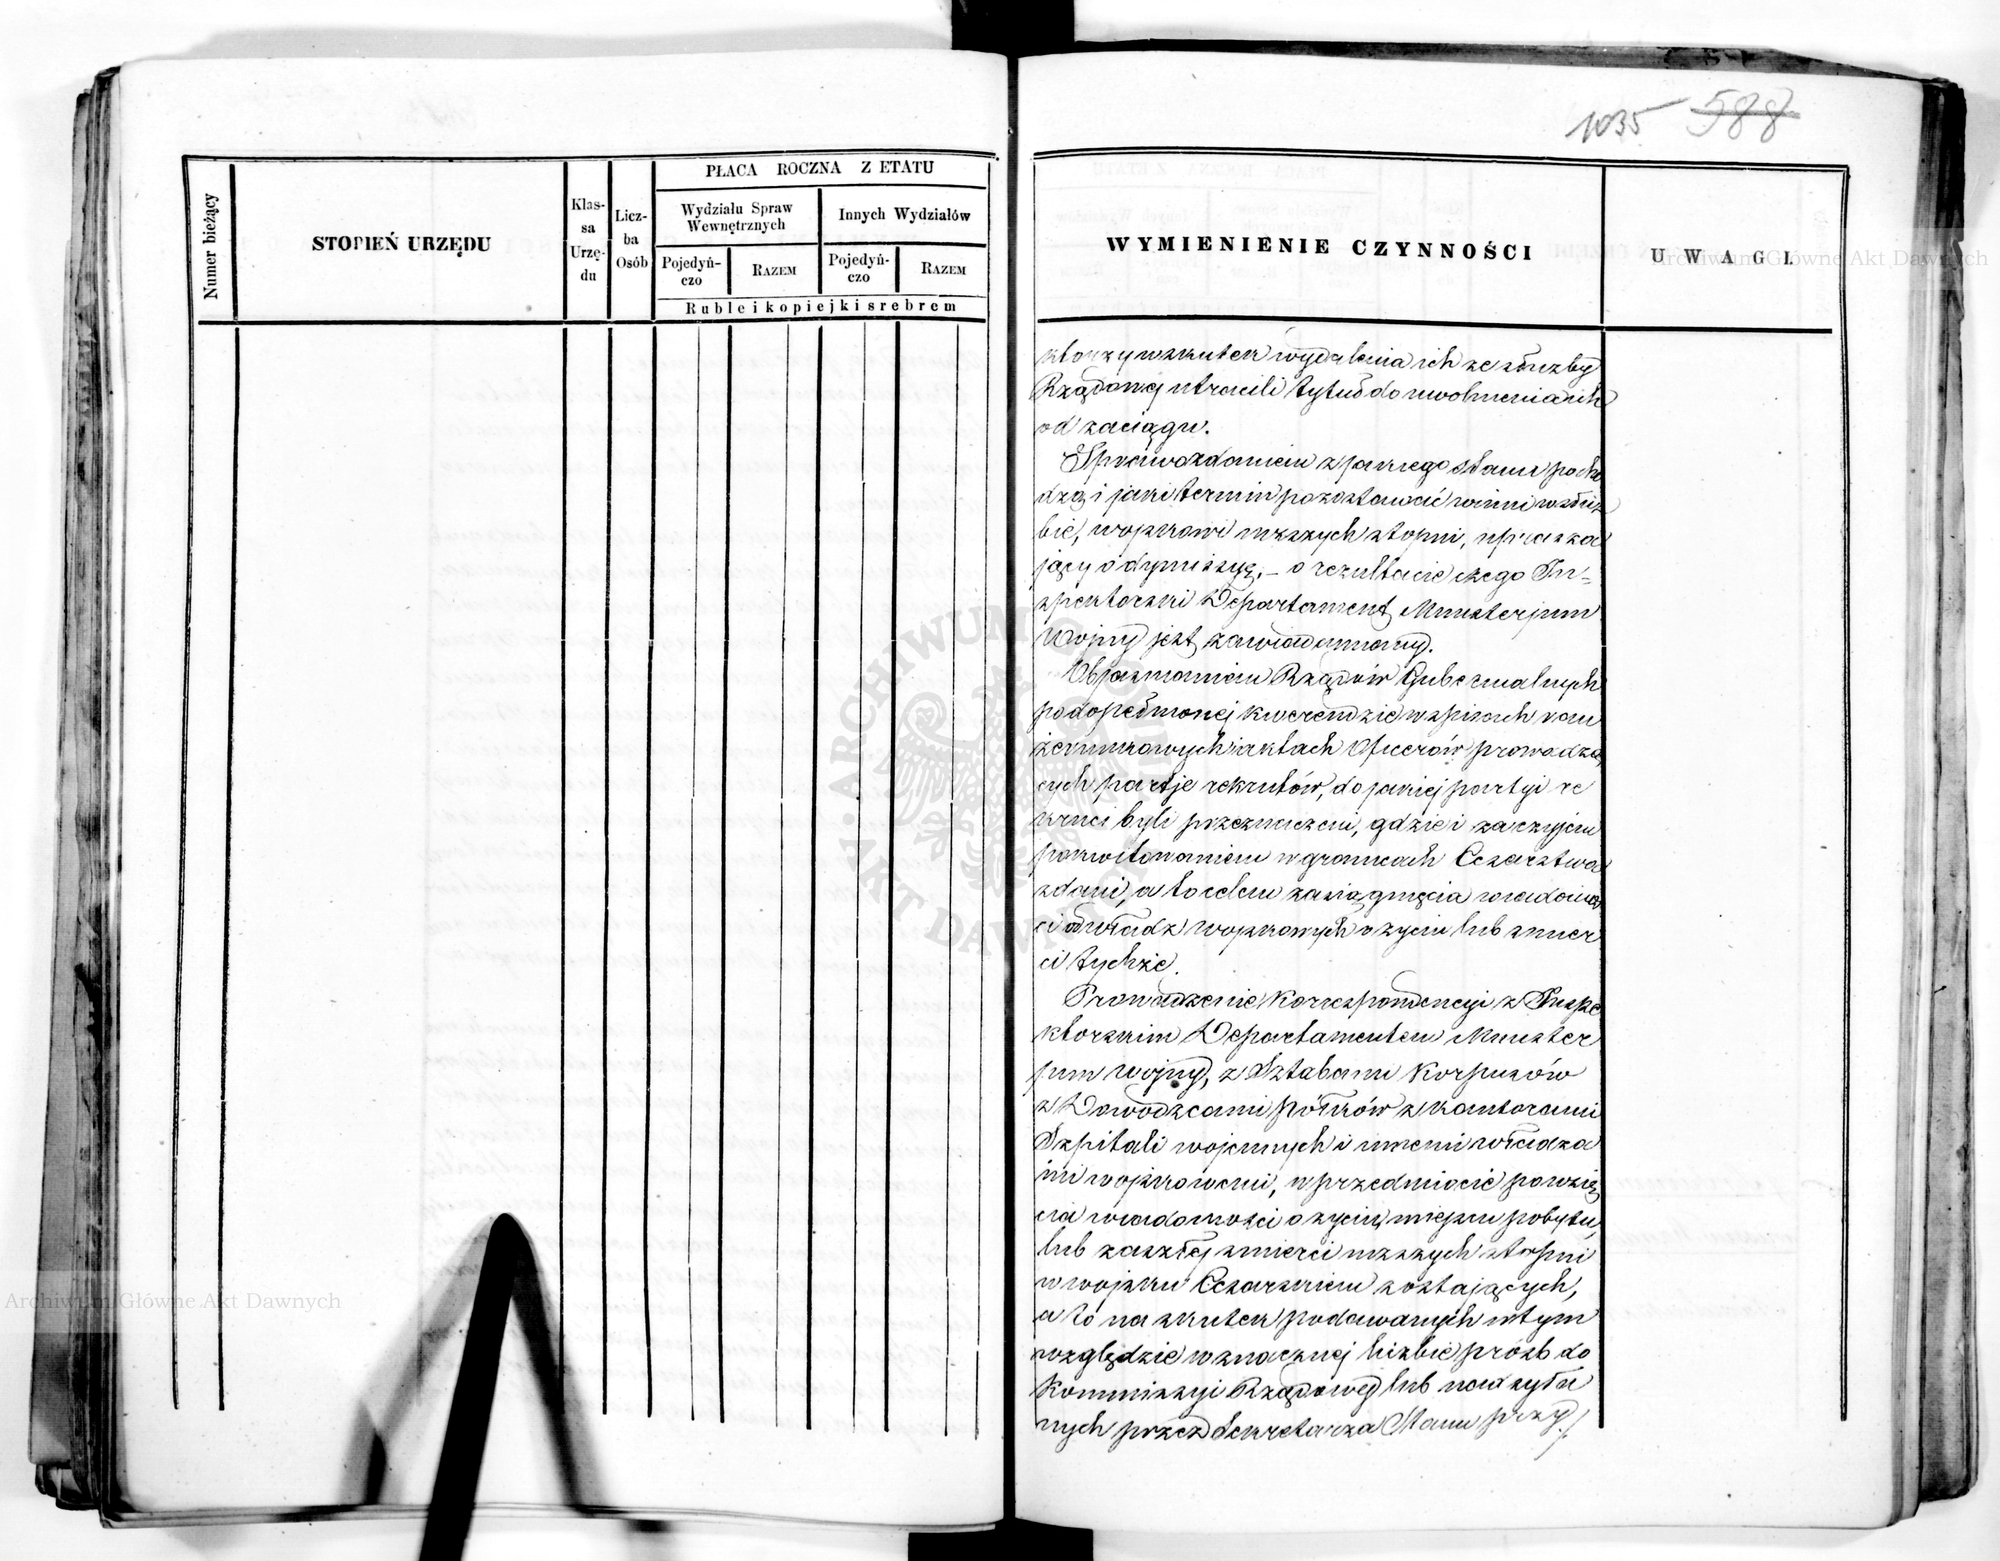 Numer bieżący
STOPIEŃ URZĘDU
Klas-
sa
Urzę-
du
Licz-
ba
Osób
PŁACA ROCZNA Z ETATU
Wydziału Spraw
Wewnętrznych
Innych Wydziałów
Pojedyń-
czo
RAZEM
Pojedyń-
czo
RAZEM
Ruble i kopiejki srebrem
1035 588
WYMIENIENIE CZYNNOŚCI
UWAGI.
którzy wskutek wydalenia ich ze służby
Rządowej utracili tytuł do uwolnienia ich
od zaciągu.
Sprawozdaniem z jakiego stanu pocho
dzą i jaki termin pozostawać winni w służ
bie, wojskowi niższych stopni, uprasza
jący o dymissyę, – o rezultacie czego In-
spektorski Departament Ministerjum
Wojny jest zawiadamiany.
Objaśnianiem Rządów Gubernialnych
po dopełnionej kwerendzie w spisach
i aktach Oficerów prowadzą
cych partje rekrutów, do jakiej partyi re
kruci byli przeznaczeni, gdzie i za czyjem
pokwitowaniem w granicach Cesarstwa
zdani, a to celem zasiągnięcia wiadomoś
ci od władz wojskowych o życiu lub śmier
ci tychże.
Prowadzenie Korrespondencyi z Inspe
ktorskim Departamentem Minister
jum Wojny, z Sztabami Korpusów
z Dowódzcami półków z kantorami
Szpitali wojennych i innemi władza
mi wojskowemi, w przedmiocie powzię
cia wiadomości o życiu, miejscu pobytu,
lub zaszłej śmierci niższych stopni
w wojsku Cesarskiem zostających,
a to na skutek podawanych w tym
względzie w znacznej liczbie próśb do
Kommissyi Rządowej lub nadsyła
nych przez Sekretarza Stanu przy
ARCHIWUM GŁÓWNE AKT DAWNYCH
Archiwum Główne Akt Dawnych
Archiwum Główne Akt Dawnych